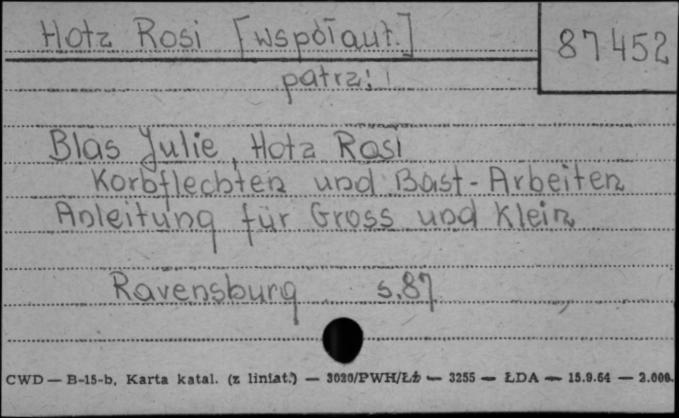 Hotz Rosi [współaut.]
87452
patrz:
Blas Julie, Hotz Rosi
Korbflechten und Bast-Arbeiten
Anleitung für Gross und Klein
Ravensburg s.87
CWD — B-15-b, Karta katal. (z liniat.) — 3020/PWH/Łż — 3255 — ŁDA — 15.9.64 — 2.000.